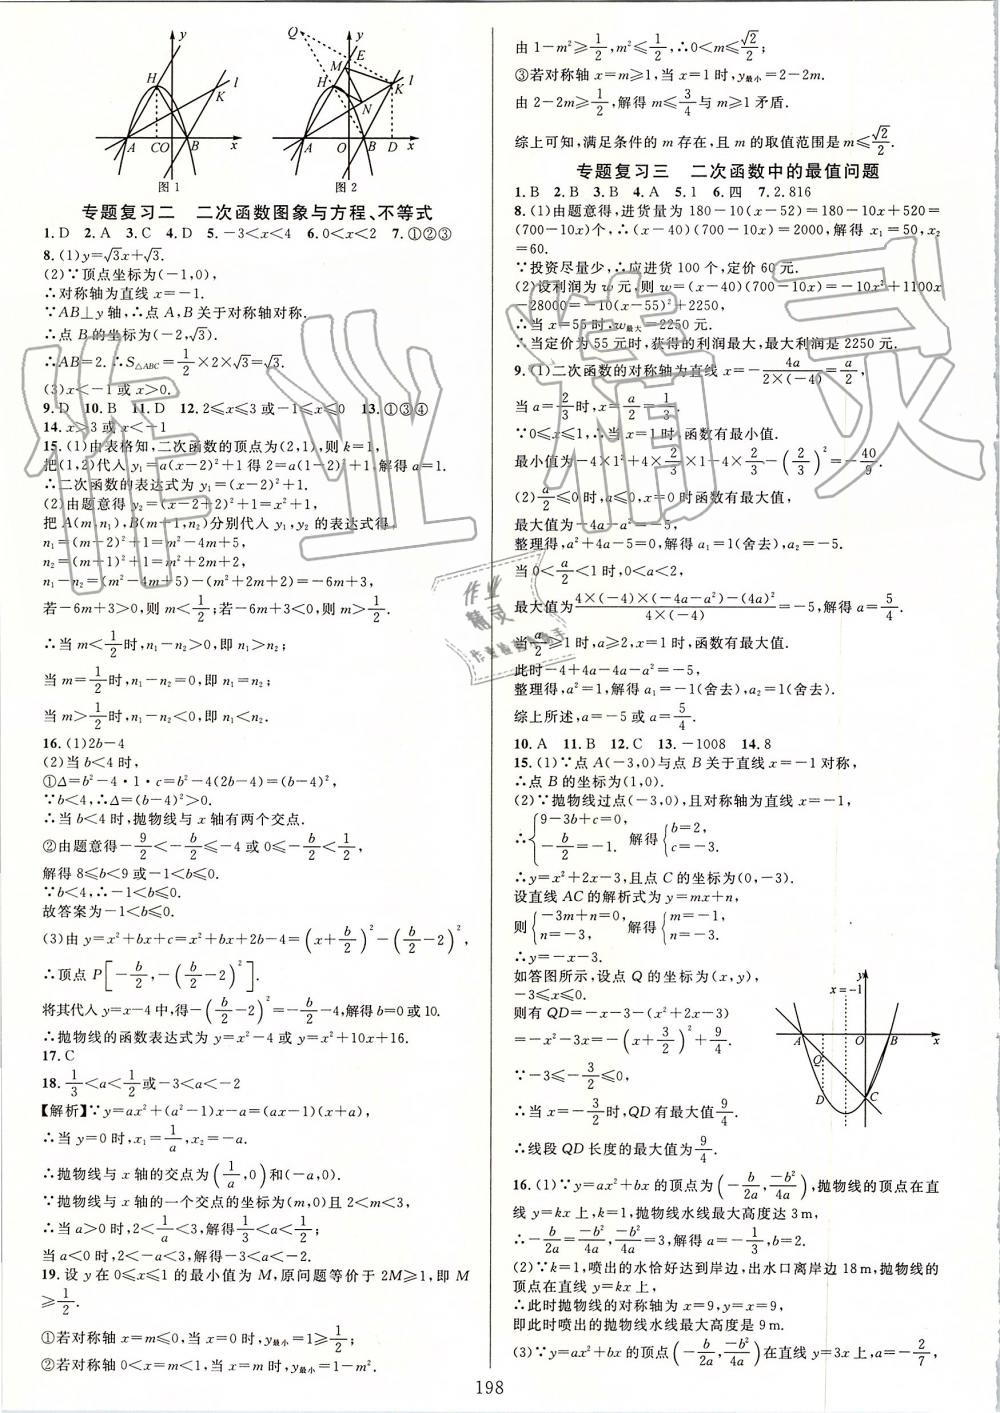 y
H
l
K
A
C
O
B
x
图1
Q
y
E
M
H
l
K
N
A
O
B
D
x
图2
专题复习二 二次函数图象与方程、不等式
1. D 2. A 3. C 4. D 5. -3<x<4 6. 0<x<2 7. ①②③
8. (1)y=√3x+√3.
(2)∵顶点坐标为(-1,0),
∴对称轴为直线 x=-1.
∵AB⊥y 轴,∴点 A,B 关于对称轴对称.
∴点 B 的坐标为(-2,√3).
∴AB=2.∴S△ABC=1/2×2×√3=√3.
(3)x<-1 或 x>0.
9. D 10. B 11. D 12. 2≤x≤3 或-1≤x≤0 13. ①③④
14. x>3 或 x<-1
15. (1)由表格知,二次函数的顶点为(2,1),则 k=1,
把(1,2)代入 y₁=a(x-2)²+1 得 2=a(1-2)²+1,解得 a=1.
∴二次函数的表达式为 y₁=(x-2)²+1.
(2)由题意得 y₂=(x-2+2)²+1=x²+1,
把 A(m,n₁),B(m+1,n₂)分别代入 y₁,y₂ 的表达式得,
n₁=(m-2)²+1=m²-4m+5,
n₂=(m+1)²+1=m²+2m+2,
n₁-n₂=(m²-4m+5)-(m²+2m+2)=-6m+3,
若-6m+3>0,则 m<1/2;若-6m+3<0,则 m>1/2.
∴当 m<1/2时,n₁-n₂>0,即 n₁>n₂;
当 m=1/2时,n₁-n₂=0,即 n₁=n₂;
当 m>1/2时,n₁-n₂<0,即 n₁<n₂.
16. (1)2b-4
(2)当 b<4 时,
①Δ=b²-4·1·c=b²-4(2b-4)=(b-4)².
∵b<4,∴Δ=(b-4)²>0.
∴当 b<4 时,抛物线与 x 轴有两个交点.
②由题意得-9/2<-b/2≤-4 或 0≤-b/2<1/2,
解得 8≤b<9 或-1<b≤0.
∵b<4,∴-1<b≤0.
故答案为-1<b≤0.
(3)由 y=x²+bx+c=x²+bx+2b-4=(x+b/2)²-(b/2-2)²,
∴顶点 P[-b/2,-(b/2-2)²].
将其代入 y=x-4 中,得-(b/2-2)²=-b/2-4.解得 b=0 或 10.
∴抛物线的函数表达式为 y=x²-4 或 y=x²+10x+16.
17. C
18. 1/3<a<1/2或-3<a<-2
【解析】∵y=ax²+(a²-1)x-a=(ax-1)(x+a),
∴当 y=0 时,x₁=1/a,x₂=-a.
∴抛物线与 x 轴的交点为(1/a,0)和(-a,0).
∵抛物线与 x 轴的一个交点的坐标为(m,0)且 2<m<3,
∴当 a>0 时,2<1/a<3,解得1/3<a<1/2;
当 a<0 时,2<-a<3,解得-3<a<-2.
19. 设 y 在 0≤x≤1 的最小值为 M,原问题等价于 2M≥1,即 M
≥1/2.
①若对称轴 x=m≤0,当 x=0 时,y最小=1≥1/2;
②若对称轴 0<x=m<1,当 x=m 时,y最小=1-m².
由 1-m²≥1/2,m²≤1/2,∴0<m≤√2/2;
③若对称轴 x=m≥1,当 x=1 时,y最小=2-2m.
由 2-2m≥1/2,解得 m≤3/4与 m≥1 矛盾.
综上可知,满足条件的 m 存在,且 m 的取值范围是 m≤√2/2.
专题复习三 二次函数中的最值问题
1. B 2. B 3. B 4. A 5. 1 6. 四 7. 2.816
8. (1)由题意得,进货量为 180-10(x-52)=180-10x+520=
(700-10x)个,∴(x-40)(700-10x)=2000,解得 x₁=50,x₂
=60.
∵投资尽量少,∴应进货 100 个,定价 60 元.
(2)设利润为 w 元,则 w=(x-40)(700-10x)=-10x²+1100x
-28000=-10(x-55)²+2250,
∴当 x=55 时,w最大=2250 元.
∴当定价为 55 元时,获得的利润最大,最大利润是 2250 元.
9. (1)二次函数的对称轴为直线 x=-4a/(2×(-4))=a/2,
当 a=2/3时,x=a/2=1/3.
∵0≤x≤1,∴当 x=1 时,函数有最小值.
最小值为-4×1²+4×2/3×1-4×2/3-(2/3)²=-40/9.
(2)a/2≤0时,a≤0,x=0 时函数有最大值,
最大值为-4a-a²=-5,
整理得,a²+4a-5=0,解得 a₁=1(舍去),a₂=-5.
当 0<a/2<1 时,0<a<2,
最大值为(4×(-4)×(-4a-a²)-(4a)²)/(4×(-4))=-5,解得 a=5/4.
当a/2≥1时,a≥2,x=1 时,函数有最大值.
此时-4+4a-4a-a²=-5,
整理得,a²=1,解得 a₁=-1(舍去),a₂=1(舍去).
综上所述,a=-5 或 a=5/4.
10. A 11. B 12. C 13. -1008 14. 8
15. (1)∵点 A(-3,0)与点 B 关于直线 x=-1 对称,
∴点 B 的坐标为(1,0).
(2)∵抛物线过点(-3,0),且对称轴为直线 x=-1,
∴{9-3b+c=0, -b/2=-1. 解得{b=2, c=-3.
∴y=x²+2x-3,且点 C 的坐标为(0,-3).
设直线 AC 的解析式为 y=mx+n,
则{-3m+n=0, n=-3, 解得{m=-1, n=-3.
∴y=-x-3.
如答图所示,设点 Q 的坐标为(x,y),
-3≤x≤0.
则有 QD=-x-3-(x²+2x-3)
=-x²-3x=-(x+3/2)²+9/4.
∵-3≤-3/2≤0,
∴当 x=-3/2时,QD 有最大值9/4.
∴线段 QD 长度的最大值为9/4.
y
x=-1
A
O
B
x
Q
D
C
16. (1)∵y=ax²+bx 的顶点为(-b/2a,-b²/4a),抛物线的顶点在直
线 y=kx 上,k=1,抛物线水线最大高度达 3 m,
∴-b/2a=-b²/4a,-b²/4a=3,解得 a=-1/3,b=2.
(2)∵k=1,喷出的水恰好达到岸边,出水口离岸边 18 m,抛物线的
顶点在直线 y=kx 上,
∴此时抛物线的对称轴为 x=9,y=x=9,
即此时喷出的抛物线水线最大高度是 9 m.
(3)∵y=ax²+bx 的顶点(-b/2a,-b²/4a)在直线 y=3x 上,a=-2/7,
198
作业精灵
作业精灵